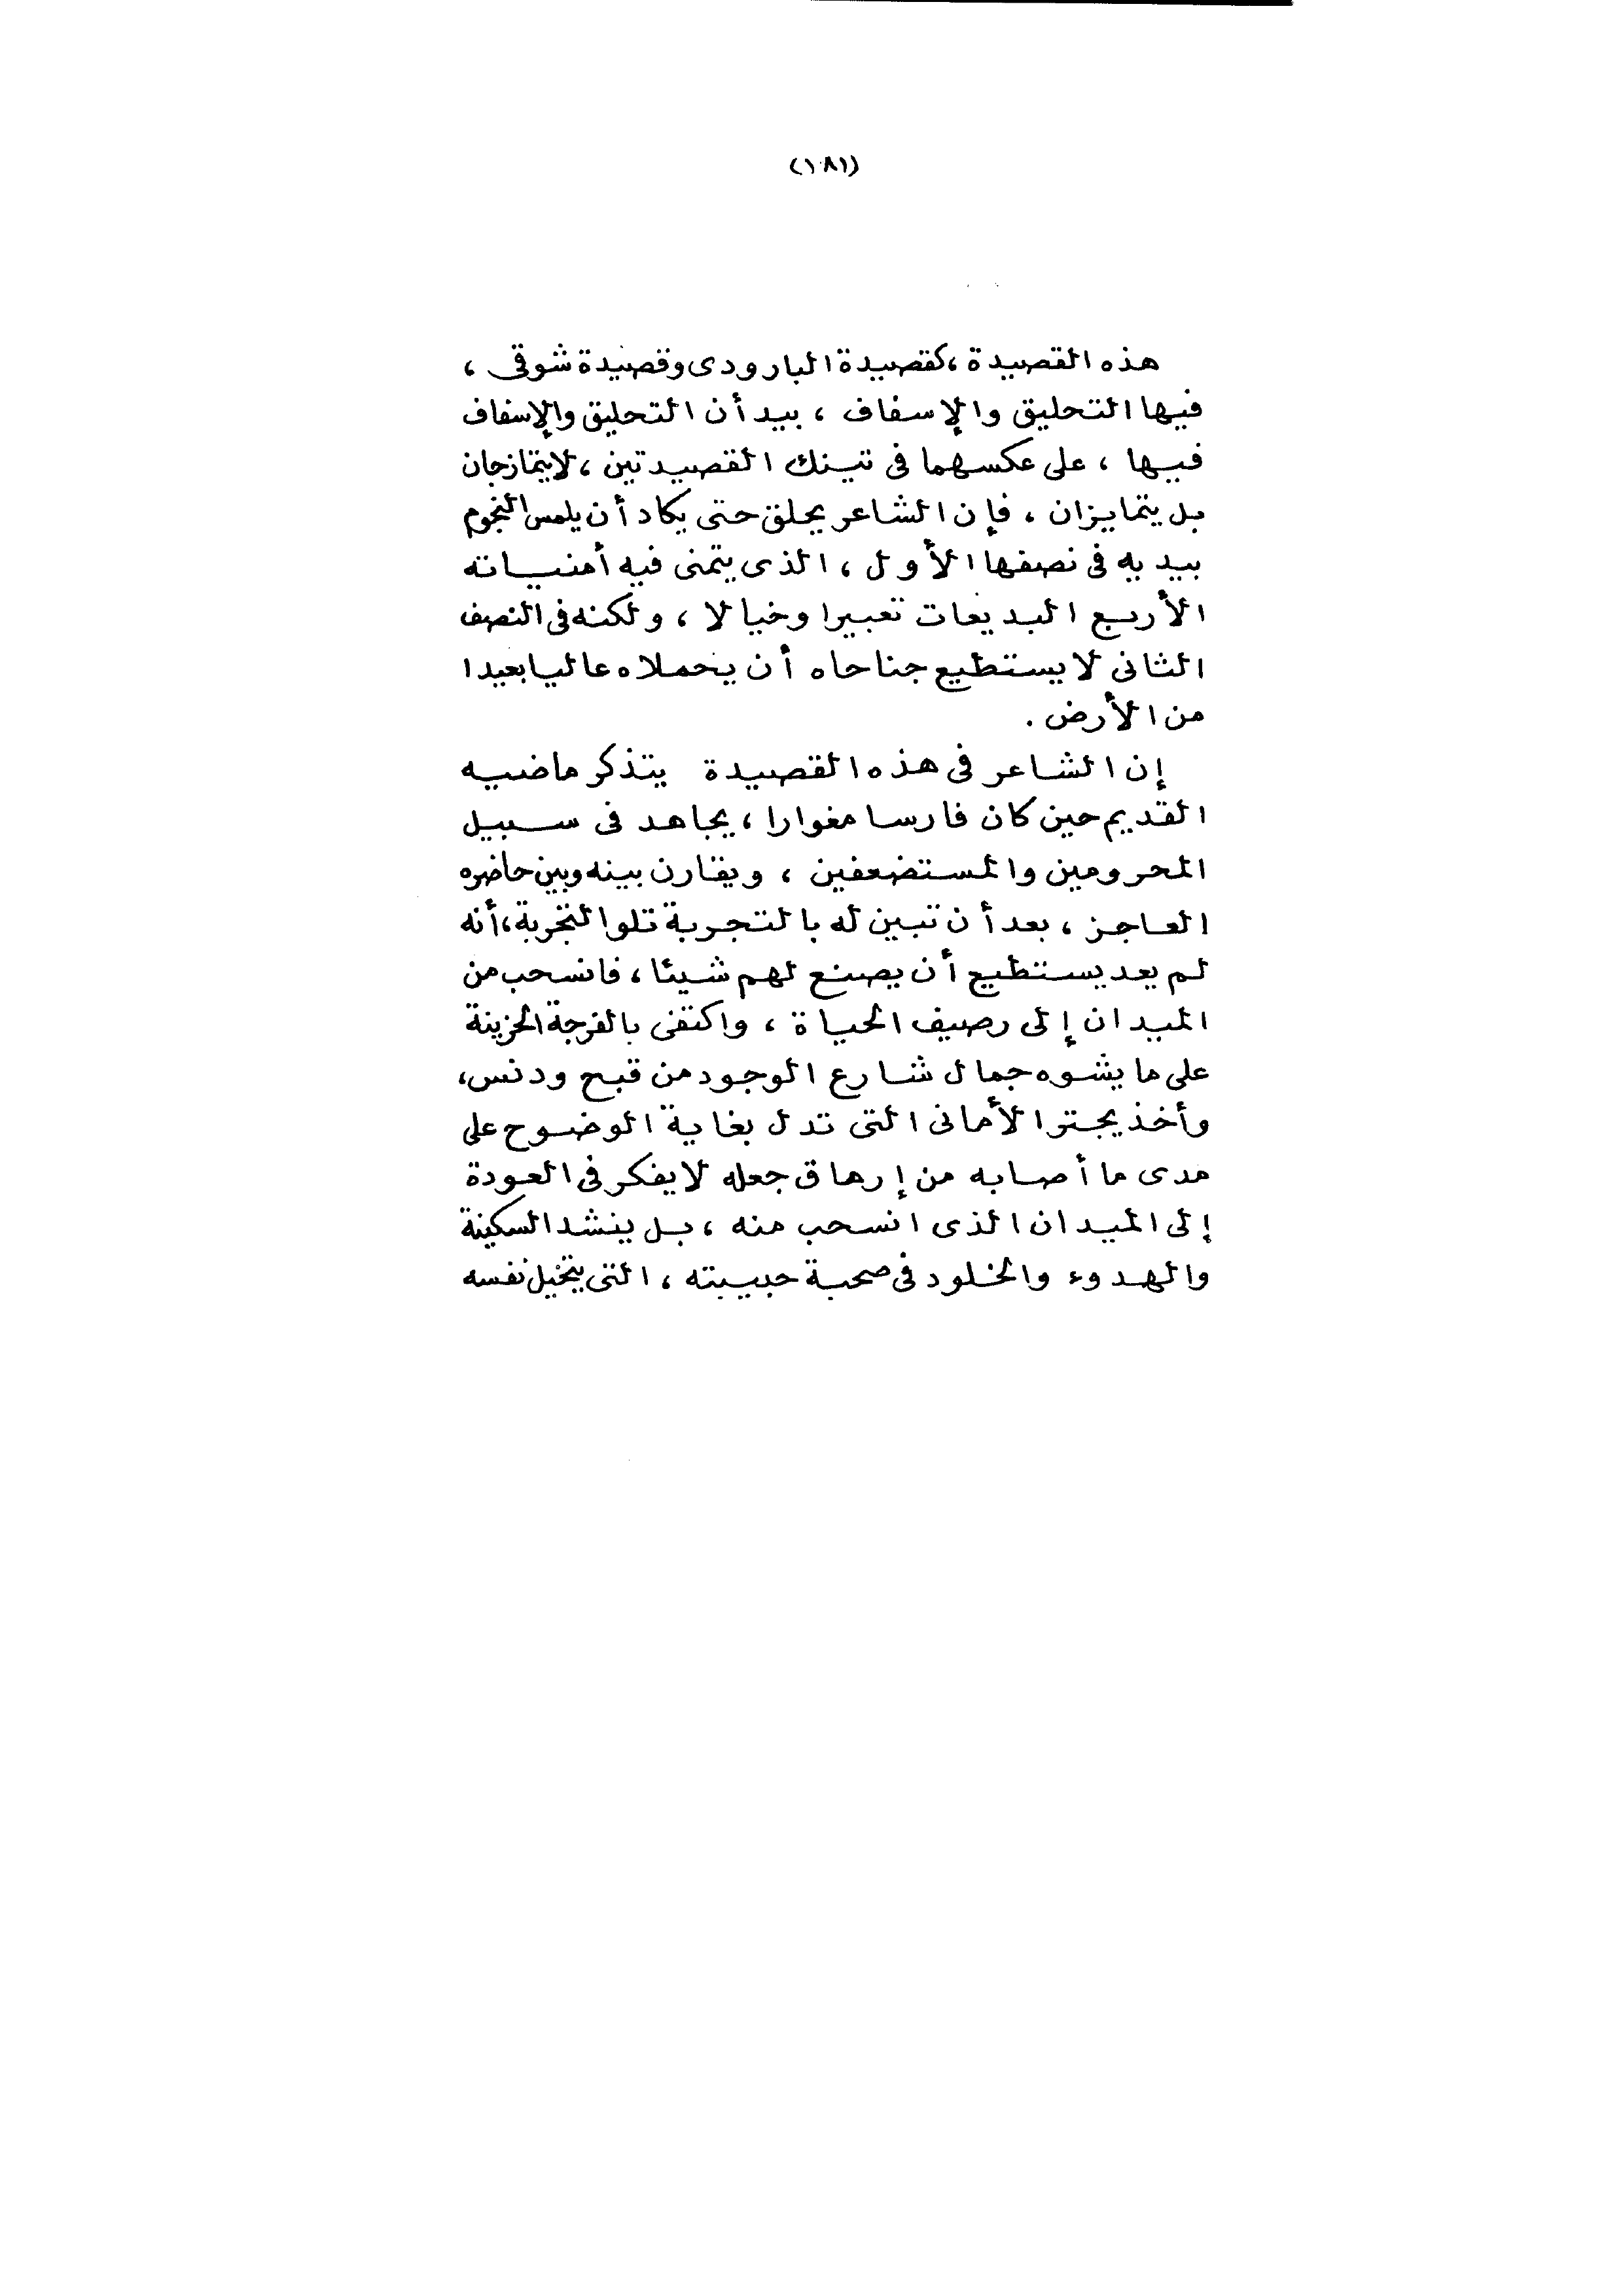 (١٨١)
هذه القصيدة ، كقصيدة البارودى وقصيدة شوقى ،
فيها التحليق والإسفاف ، بيد أن التحليق والإسفاف
فيها ، على عكسهما فى تينك القصيدتين ، لا يتمازجان
بل يتمايزان ، فإن الشاعر يحلق حتى يكاد أن يلمس النجوم
بيديه فى نصفها الأول ، الذى يتمنى فيه أمنياته
الأربع البديعات تعبيرا وخيالا ، ولكنه فى النصف
الثانى لا يستطيع جناحاه أن يحملاه عاليا بعيدا
من الأرض .
إن الشاعر فى هذه القصيدة يتذكر ماضيه
القديم حين كان فارسا مغوارا ، يجاهد فى سبيل
المحرومين والمستضعفين ، ويقارن بينه وبين حاضره
العاجز ، بعد أن تبين له بالتجربة تلو التجربة ، أنه
لم يعد يستطيع أن يصنع لهم شيئا ، فانسحب من
الميدان إلى رصيف الحياة ، واكتفى بالفرجة الحزينة
على ما يشوه جمال شارع الوجود من قبح ودنس ،
وأخذ يجتر الأمانى التى تدل بغاية الوضوح على
مدى ما أصابه من إرهاق جعله لا يفكر فى العودة
إلى الميدان الذى انسحب منه ، بل ينشد السكينة
والهدوء والخلود فى صحبة حبيبته ، التى يتخيل نفسه